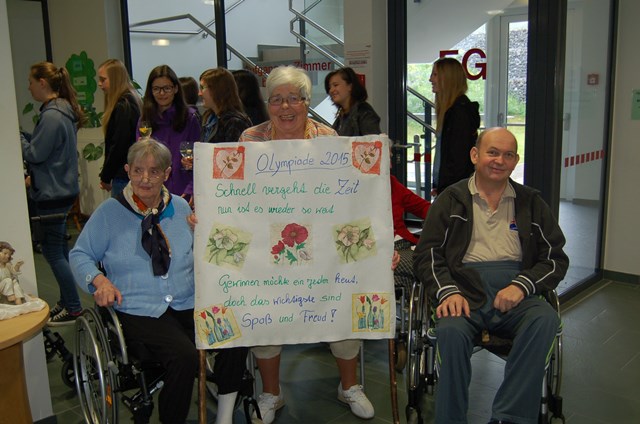 Zimmer
EG
OLympiade 2015
Schnell vergeht die Zeit
nun ist es wieder so weit
Gewinnen möchte ein jeder heut,
doch das wichtigste sind
Spaß und Freud!